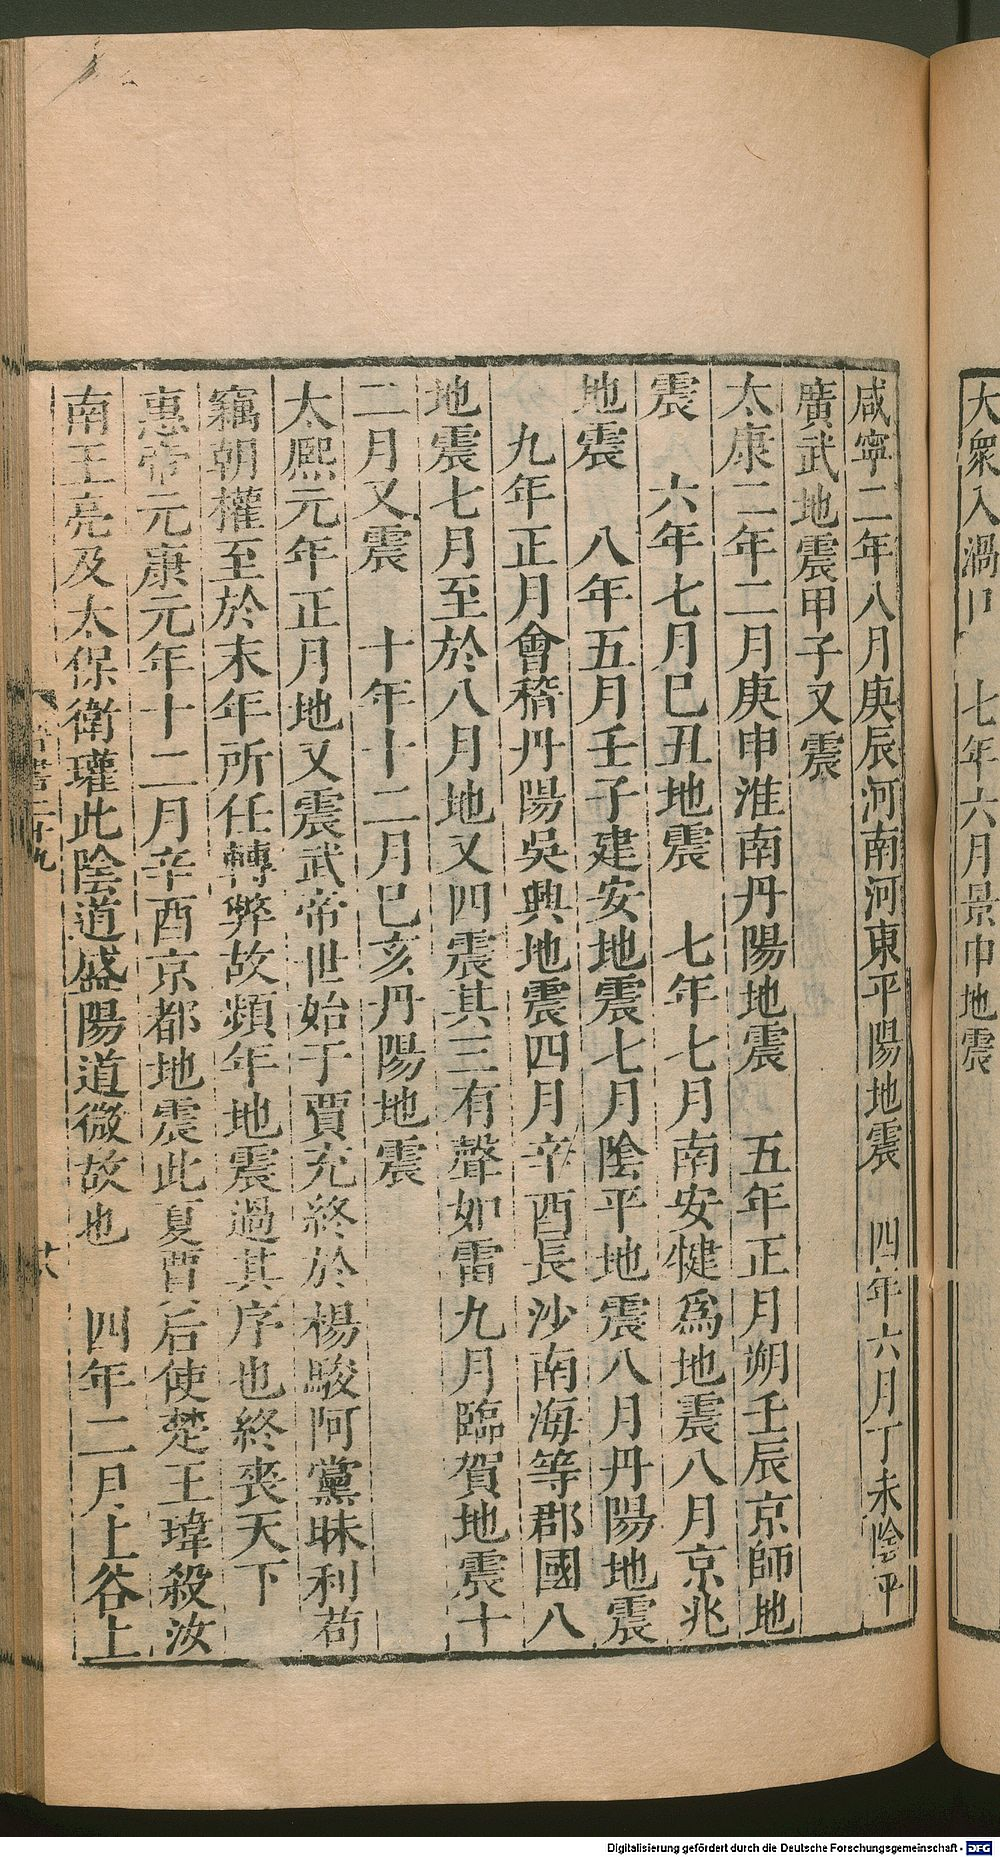 大衆入渦口　七年六月景申地震
咸寧二年八月庚辰河南河東平陽地震　四年六月丁未陰平
廣武地震甲子又震
太康二年二月庚申淮南丹陽地震　五年正月朔壬辰京師地
震　六年七月巳丑地震　七年七月南安犍爲地震八月京兆
地震　八年五月壬子建安地震七月陰平地震八月丹陽地震
九年正月會稽丹陽吳興地震四月辛酉長沙南海等郡國八
地震七月至於八月地又四震其三有聲如雷九月臨賀地震十
二月又震　十年十二月巳亥丹陽地震
太熙元年正月地又震武帝世始于賈充終於楊駿阿黨昧利苟
竊朝權至於末年所任轉弊故頻年地震過其序也終喪天下
惠帝元康元年十二月辛酉京都地震此夏賈后使楚王瑋殺汝
南王亮及太保衛瓘此陰道盛陽道微故也　四年二月上谷上
晉書二十九
Digitalisierung gefördert durch die Deutsche Forschungsgemeinschaft - DFG